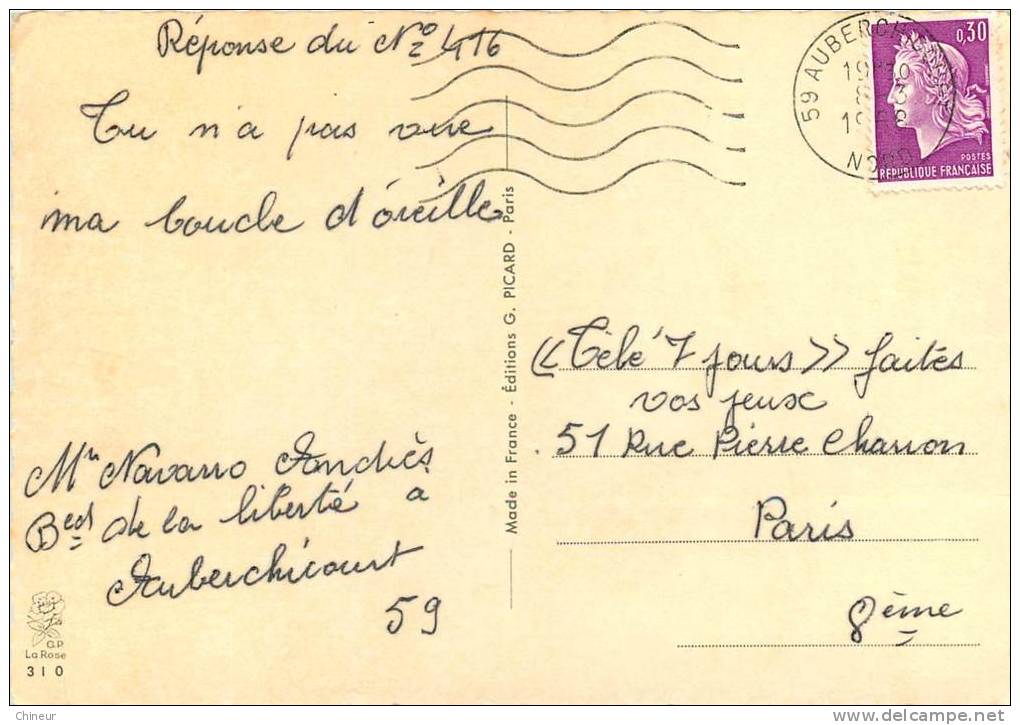 Réponse du Nº 416
Tu n'a pas vue
ma boucle d'oreille
Mr Navarro Andrès
Bed de la liberté a
Auberchicourt
59
G.P.
La Rose
310
Made in France - Éditions G. PICARD - Paris
59 AUBERCHICOURT
8 3
1968
NORD
0,30
POSTES
RÉPUBLIQUE FRANÇAISE
«Télé 7 jours» faites
vos jeux
51 Rue Pierre Charron
Paris
8ème
Chineur
www.delcampe.net